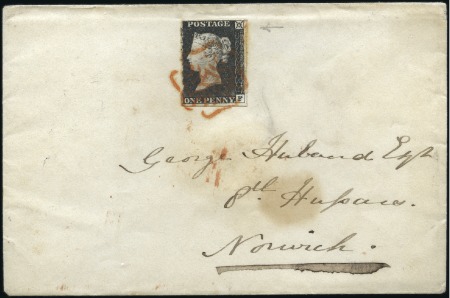 POSTAGE
ONE PENNY
F
George Huband Esqr
8th Hussars.
Norwich.